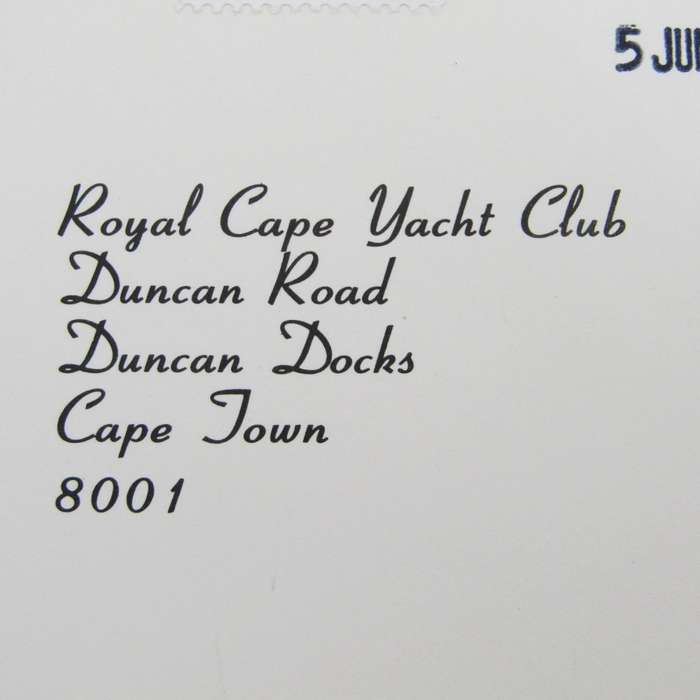 5
Royal Cape Yacht Club
Duncan Road
Duncan Docks
Cape Town
8001